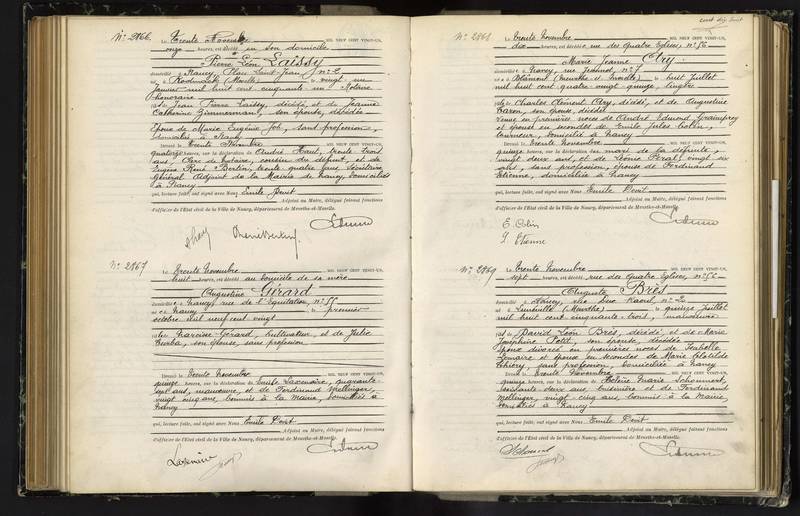 N° 2866.
Le Trente Novembre MIL NEUF CENT VINGT-UN,
onze heures, est décédé en son domicile
Pierre Léon Laissy
domicilié à Nancy, Place Saint-Jean, n° 2
né à (Moselle) le vingt un
janvier mil huit cent cinquante un Notaire
honoraire
fils de Jean Pierre Laissy, décédé, et de Jeanne
Catherine Zimmermann, son épouse, décédée
Époux de Marie Eugénie Job, sans profession,
domiciliée à Nancy
Devant le trente Novembre MIL NEUF CENT VINGT-UN,
quatorze heures, sur la déclaration de André Haut, trente trois
ans, Clerc de notaire, cousin du défunt, et de
Eugène René Bertin, trente quatre ans, Secrétaire
Général Adjoint de la Mairie de Nancy, domiciliés
à Nancy
qui, lecture faite, ont signé avec Nous Emile
Adjoint au Maire, délégué faisant fonctions
d'officier de l'Etat civil de la Ville de Nancy, département de Meurthe-et-Moselle.
N° 2867
Le trente Novembre MIL NEUF CENT VINGT-UN,
huit heures, est au domicile de sa mère
Augustine Girard
domiciliée à Nancy, rue de l'Equitation, n° 55
née à Nancy le premier
octobre mil neuf cent vingt
fille de Narcisse Girard, cultivateur, et de Julie
son épouse, sans profession
Devant le trente Novembre MIL NEUF CENT VINGT-UN,
quinze heures, sur la déclaration de quarante
sept ans, manœuvre, et de Ferdinand Mellinger,
vingt cinq ans, commis à la Mairie, domiciliés à
Nancy
qui, lecture faite, ont signé avec Nous Emile
Adjoint au Maire, délégué faisant fonctions
d'officier de l'Etat civil de la Ville de Nancy, département de Meurthe-et-Moselle.
cent dix huit
N° 2868
Le trente Novembre MIL NEUF CENT VINGT-UN,
dix heures, est décédée rue des Quatre Eglises, n° 56
Marie Jeanne Cry
domiciliée à Nancy, rue Jeannot, n° 7
née à Blâmont (Meurthe et Moselle) le huit juillet
mil huit cent quatre vingt quinze, lingère
fille de Charles Clément Cry, décédé, et de Augustine
son épouse, décédée
Veuve en premières noces de André Edmond
et épouse en secondes de Emile Jules Colin,
tourneur, domicilié à Nancy
Devant le trente Novembre MIL NEUF CENT VINGT-UN,
quinze heures, sur la déclaration du mari de la défunte,
vingt deux ans, et de Léonie vingt six
ans, sans profession, épouse de Ferdinand
Etienne, domiciliée à Nancy
qui, lecture faite, ont signé avec Nous Emile
Adjoint au Maire, délégué faisant fonctions
d'officier de l'Etat civil de la Ville de Nancy, département de Meurthe-et-Moselle.
E. Colin
L. Etienne
N° 2869
Le trente Novembre MIL NEUF CENT VINGT-UN,
sept heures, est décédé rue des Quatre Eglises, n° 56
Auguste Brès
domicilié à Nancy, rue Duc Raoul, n° 2
né à Lunéville (Meurthe) le quinze juillet
mil huit cent cinquante trois, manœuvre
fils de David Léon Brès, décédé, et de Marie
Joséphine Petit, son épouse, décédée
Époux divorcé en premières noces de Isabelle
Lemaire et époux en secondes de Marie Clotilde
Thiéry, sans profession, domiciliée à Nancy
Devant le trente Novembre MIL NEUF CENT VINGT-UN,
quinze heures, sur la déclaration de Hélène Marie
soixante deux ans, et de Ferdinand
Mellinger, vingt cinq ans, commis à la Mairie,
domiciliés à Nancy
qui, lecture faite, ont signé avec Nous Emile
Adjoint au Maire, délégué faisant fonctions
d'officier de l'Etat civil de la Ville de Nancy, département de Meurthe-et-Moselle.